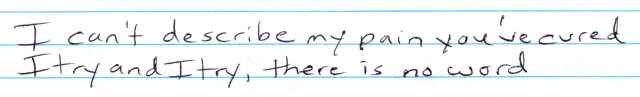 I can't describe my pain you've cured
I try and I try, there is no word